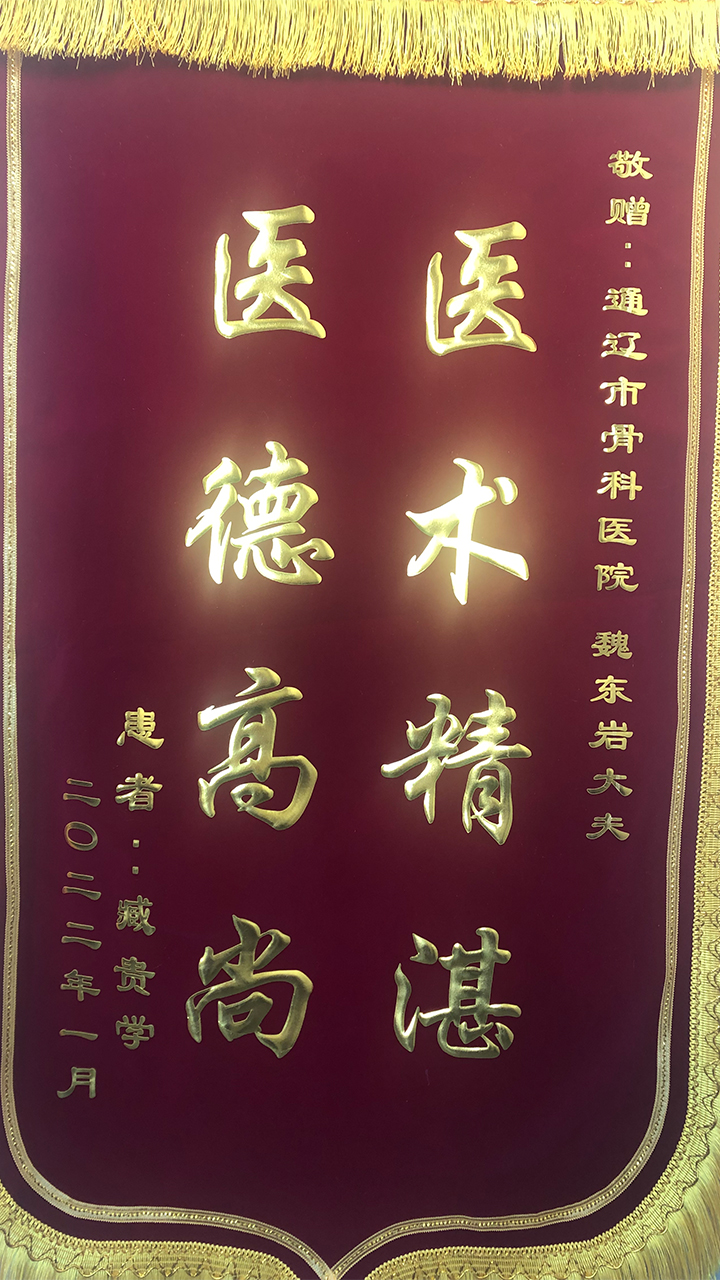 敬赠：通辽市骨科医院 魏东岩大夫
医术精湛
医德高尚
患者：臧贵学
二〇二二年一月